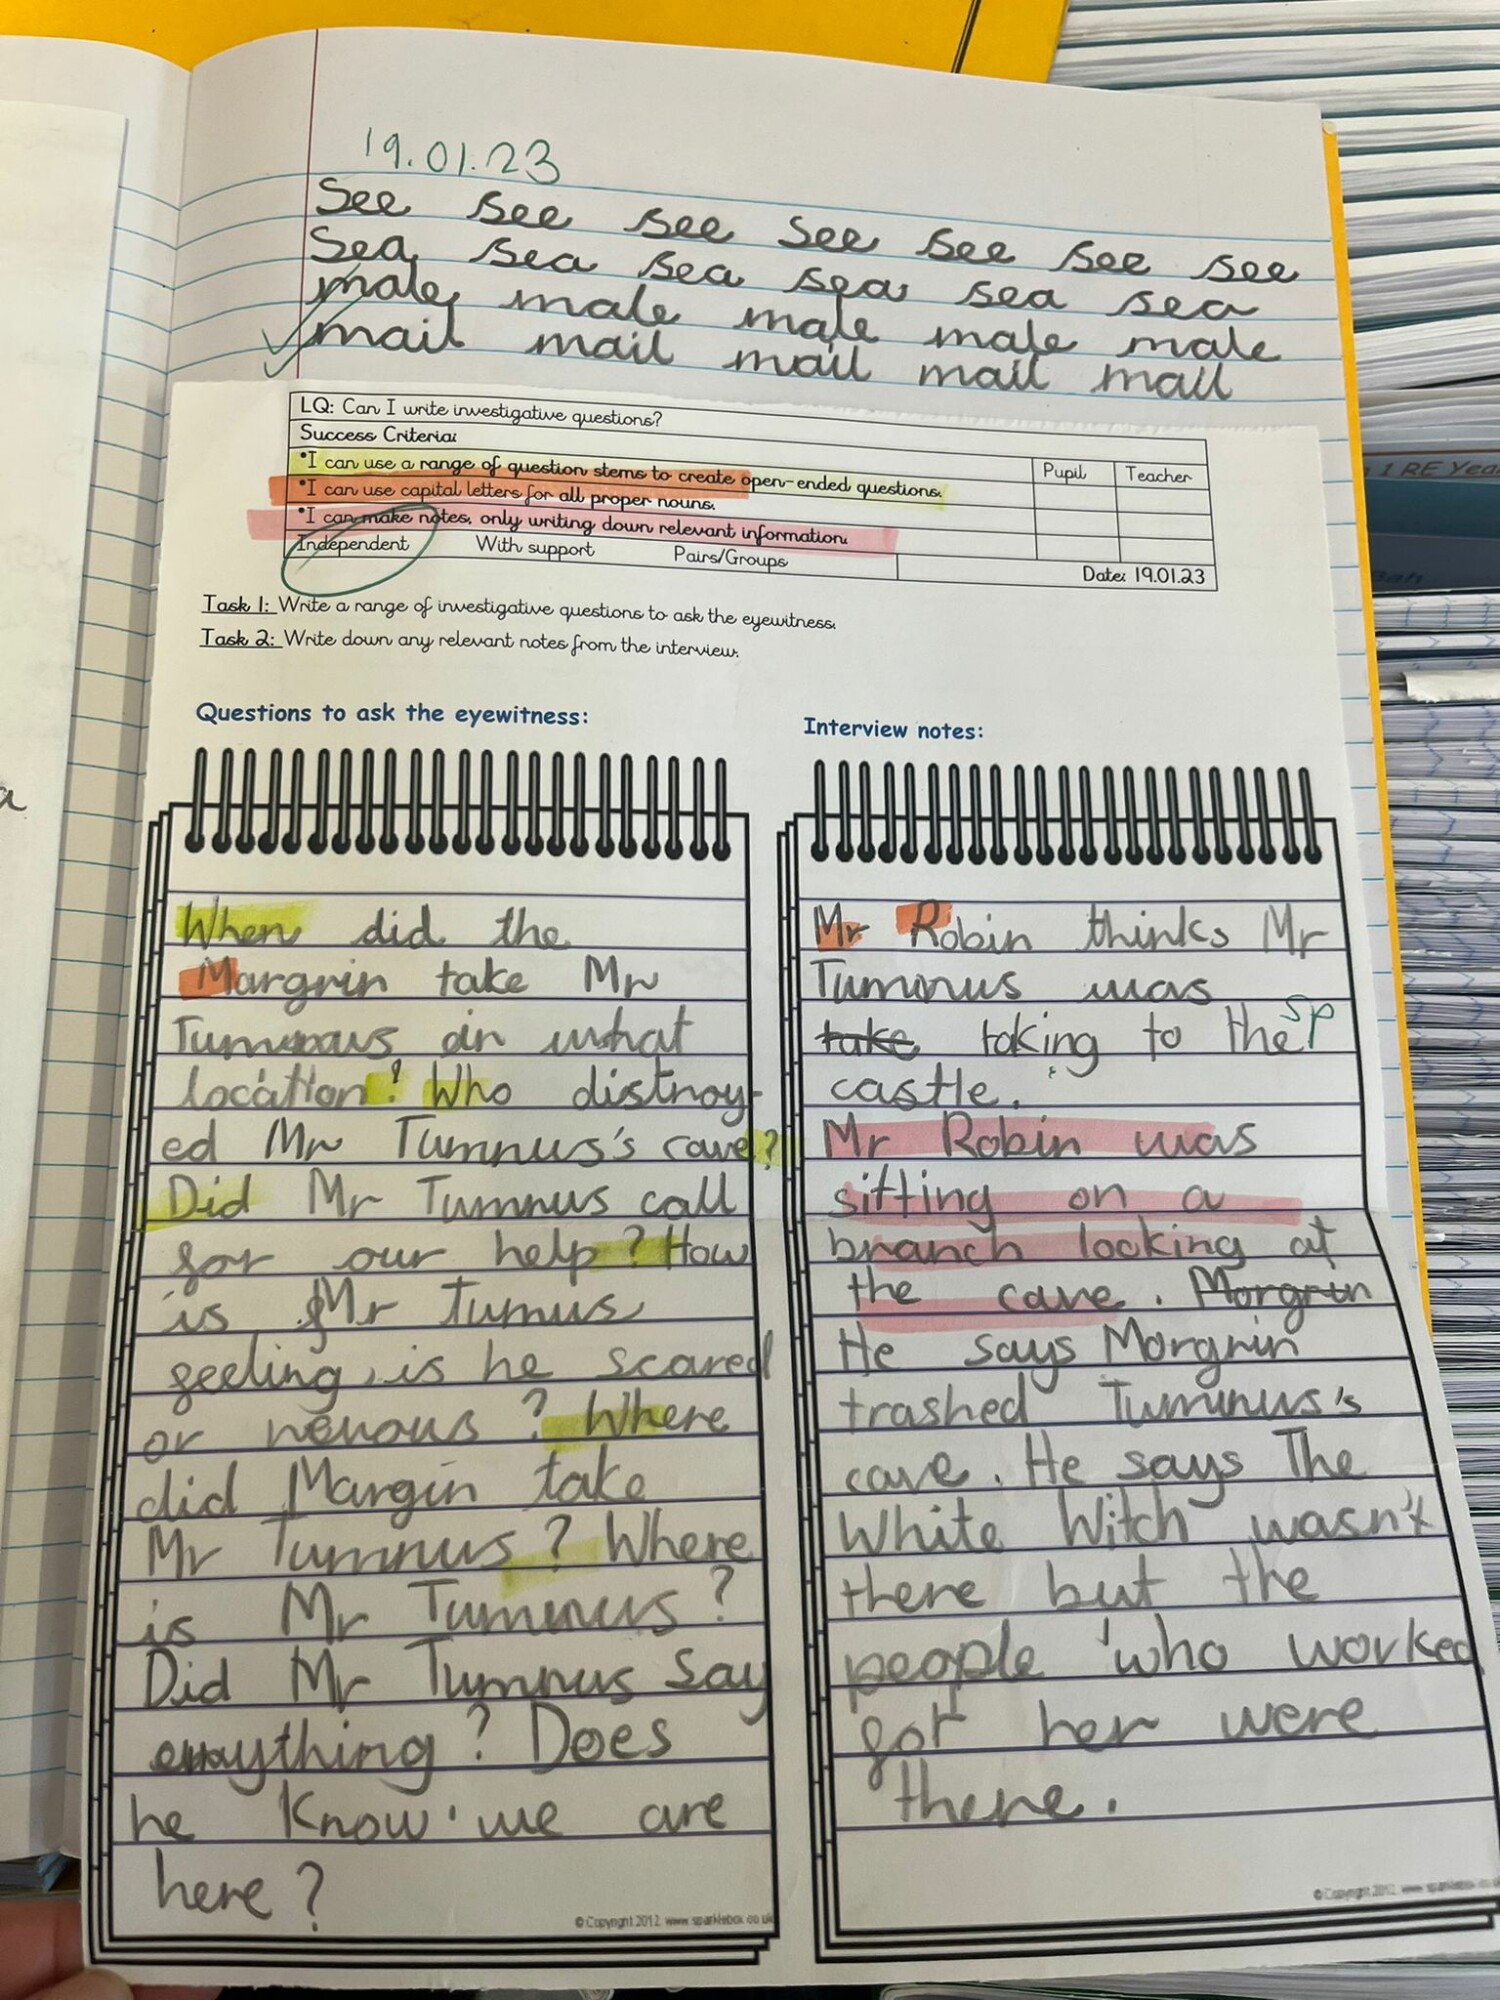 19.01.23
See see see see see see see
Sea sea sea sea sea sea
male male male male male
mail mail mail mail mail
LQ: Can I write investigative questions?
Success Criteria:
Pupil Teacher
*I can use a range of question stems to create open-ended questions.
*I can use capital letters for all proper nouns.
*I can make notes, only writing down relevant information.
Independent With support Pairs/Groups
Date: 19.01.23
Task 1: Write a range of investigative questions to ask the eyewitness.
Task 2: Write down any relevant notes from the interview.
Questions to ask the eyewitness:
When did the
Margrin take Mr
Tumnus in what
location? Who distroy-
ed Mr Tumnus's cave?
Did Mr Tumnus call
for our help? How
is Mr Tumus
feeling, is he scared
or nervous? Where
did Margin take
Mr Tumnus? Where
is Mr Tumnus?
Did Mr Tumnus say
anything? Does
he know we are
here?
© Copyright 2012 www.sparklebox.co.uk
Interview notes:
Mr Robin thinks Mr
Tumnus was
take taking to the sp
castle.
Mr Robin was
sitting on a
branch looking at
the cave. Morgrin
He says Morgrin
trashed Tumnus's
cave. He says The
White Witch wasn't
there but the
people who worked
for her were
there.
© Copyright 2012
1 RE Year